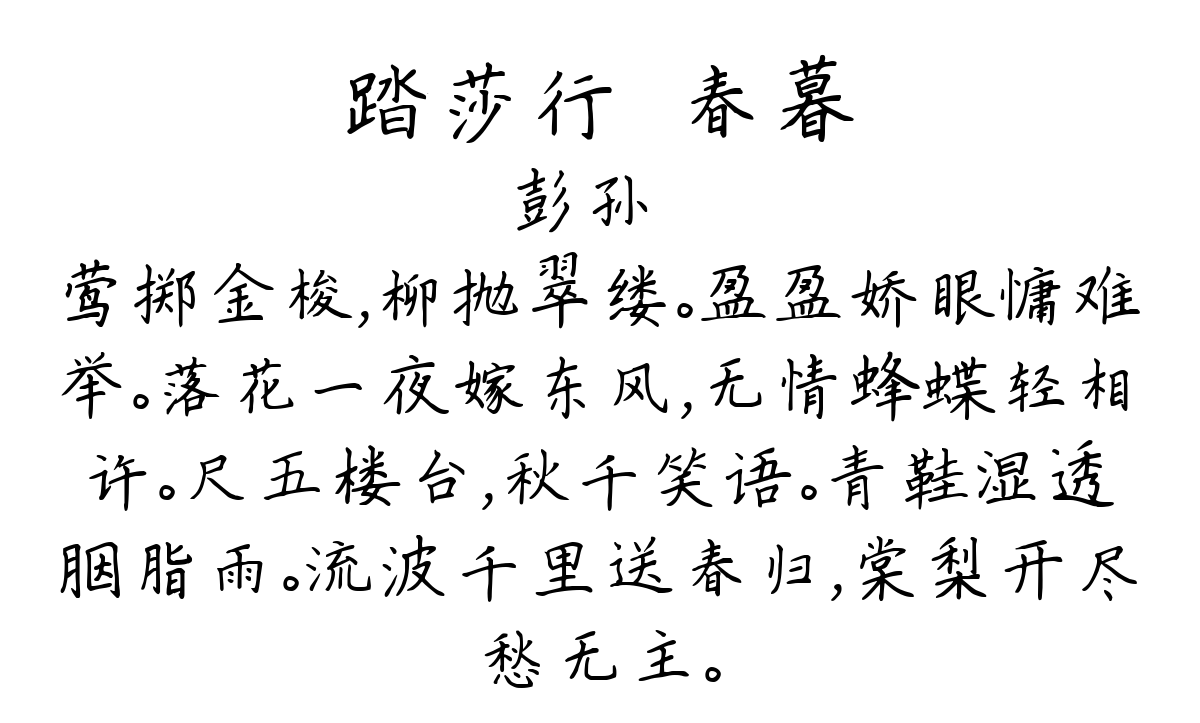 踏莎行 春暮
彭孙
莺掷金梭,柳抛翠缕。盈盈娇眼慵难
举。落花一夜嫁东风,无情蜂蝶轻相
许。尺五楼台,秋千笑语。青鞋湿透
胭脂雨。流波千里送春归,棠梨开尽
愁无主。